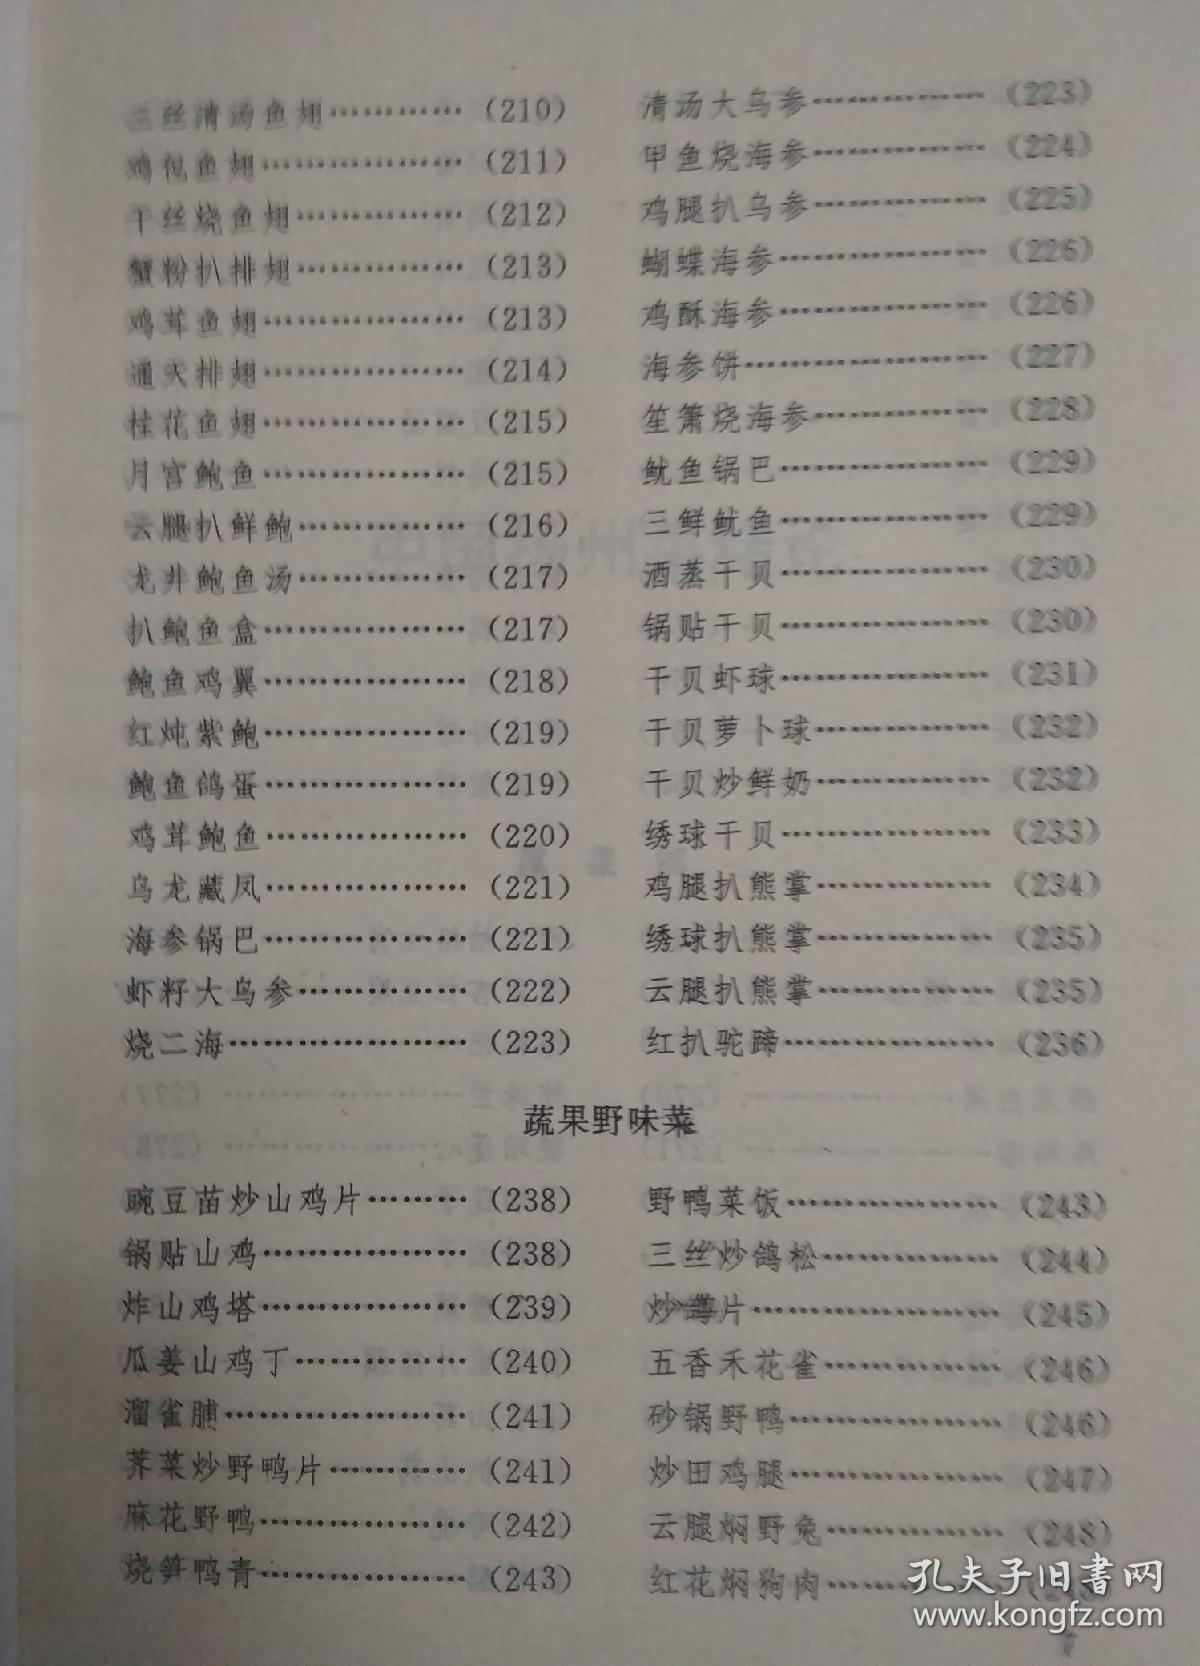 三丝清汤鱼翅……………(210)
鸡包鱼翅…………………(211)
干丝烧鱼翅………………(212)
蟹粉扒排翅………………(213)
鸡茸鱼翅…………………(213)
通天排翅…………………(214)
桂花鱼翅…………………(215)
月宫鲍鱼…………………(215)
云腿扒鲜鲍………………(216)
龙井鲍鱼汤………………(217)
扒鲍鱼盒…………………(217)
鲍鱼鸡翼…………………(218)
红炖紫鲍…………………(219)
鲍鱼鸽蛋…………………(219)
鸡茸鲍鱼…………………(220)
乌龙藏凤…………………(221)
海参锅巴…………………(221)
虾籽大乌参………………(222)
烧二海……………………(223)
清汤大乌参………………(223)
甲鱼烧海参………………(224)
鸡腿扒乌参………………(225)
蝴蝶海参…………………(226)
鸡酥海参…………………(226)
海参饼……………………(227)
笙箫烧海参………………(228)
鱿鱼锅巴…………………(229)
三鲜鱿鱼…………………(229)
酒蒸干贝…………………(230)
锅贴干贝…………………(230)
干贝虾球…………………(231)
干贝萝卜球………………(232)
干贝炒鲜奶………………(232)
绣球干贝…………………(233)
鸡腿扒熊掌………………(234)
绣球扒熊掌………………(235)
云腿扒熊掌………………(235)
红扒驼蹄…………………(236)
蔬果野味菜
豌豆苗炒山鸡片…………(238)
锅贴山鸡…………………(238)
炸山鸡塔…………………(239)
瓜姜山鸡丁………………(240)
溜雀脯……………………(241)
荠菜炒野鸭片……………(241)
麻花野鸭…………………(242)
烧笋鸭青…………………(243)
野鸭菜饭…………………(243)
三丝炒鸽松………………(244)
炒 片……………………(245)
五香禾花雀………………(246)
砂锅野鸭…………………(246)
炒田鸡腿…………………(247)
云腿焖野兔………………(248)
红花焖狗肉………………
7
孔夫子旧书网
www.kongfz.com